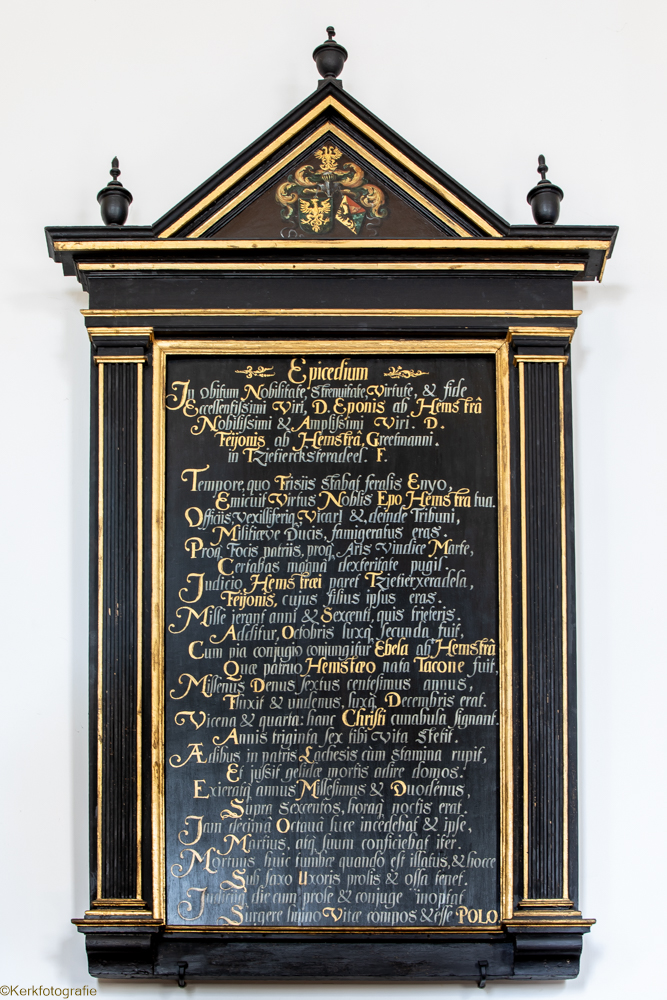 Epicedium
In obitum Nobilitate, strenuitate, Virtute, & fide
Eccellentissimi Viri, D. Eponis ab Hemstrâ
Nobilissimi & Amplissimi Viri. D.
Feijonis ab Hemstrâ, Greetmanni.
in Tzietiercksteradeel. F.
Tempore, quo Frisiis stabat feralis Enyo,
Emicuit Virtus Noblis Epo Hemstra tua.
Officiis, vexilliferiq Vicari & deinde Tribuni,
Militiæve Ducis, famigeratus eras.
Proq Focis patriis, proq Aris Vindice Marte,
Certabas magnâ dexteritate pugil.
Judicio Hemstræi paret Tzietierxeradela,
Feijonis, cujus filius ipsus eras.
Mille ierant anni & Sexcenti, quis trieteris.
Additur, Octobris luxq secunda fuit,
Cum pia conjugio conjungitur Ebela ab Hemstrâ
Quæ patruo Hemstæo nata Tacone fuit,
Millenus Denus sextus centesimus annus,
Fluxit & undenus, luxq Decembris erat.
Vicena & quarta: hanc Christi cunabula signant.
Annis triginta sex tibi vita stetit.
Ædibus in patris Lachesis cùm stamina rupit,
Et jussit gelidæ mortis adire domos.
Exieratq annus Millesimus & Duodenus,
Supra Sexcentos, horaq noctis erat.
Jam decima Octavâ luce incedebat & ipse,
Martius, atq suum conficiebat iter.
Mortuus huic tumbæ quando est illatus, & hocce
Sub saxo Uxoris prolis & ossa tenet.
Judiciiq die cum prole & conjuge
Surgere supino Vitæ compos & esse POLO
©Kerkfotografie